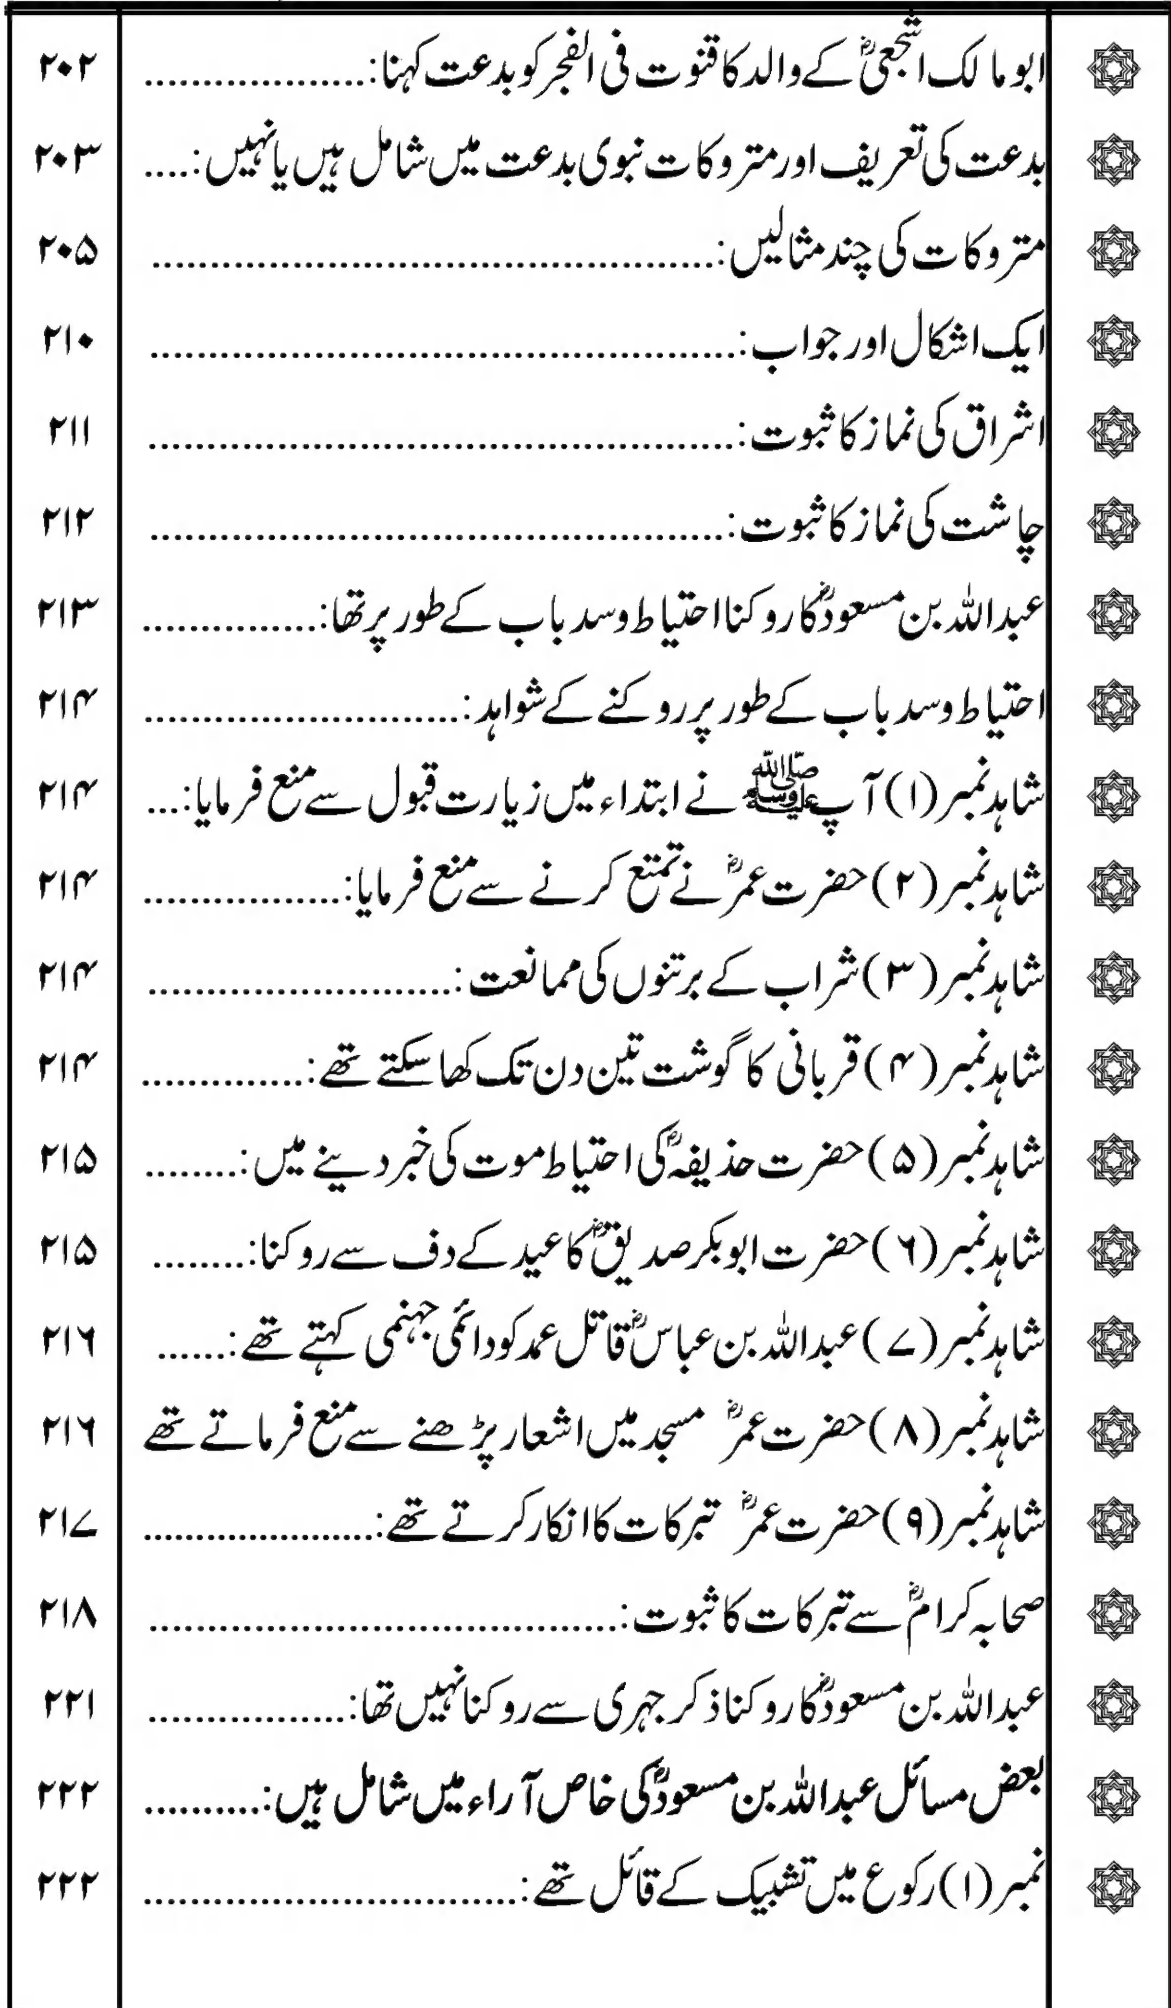 ابو مالک اشجعیؓ کے والد کا قنوت فی الفجر کو بدعت کہنا:................... ۲۰۲
بدعت کی تعریف اور متروکات نبوی بدعت میں شامل ہیں یا نہیں:.... ۲۰۳
متروکات کی چند مثالیں:................................................ ۲۰۵
ایک اشکال اور جواب:.................................................. ۲۱۰
اشراق کی نماز کا ثبوت:.................................................. ۲۱۱
چاشت کی نماز کا ثبوت:................................................. ۲۱۲
عبداللہ بن مسعودؓ کا روکنا احتیاط وسد باب کے طور پر تھا:............... ۲۱۳
احتیاط وسد باب کے طور پر روکنے کے شواہد:........................... ۲۱۴
شاہد نمبر (۱) آپ ﷺ نے ابتداء میں زیارت قبول سے منع فرمایا:... ۲۱۴
شاہد نمبر (۲) حضرت عمرؓ نے تمتع کرنے سے منع فرمایا:................. ۲۱۴
شاہد نمبر (۳) شراب کے برتنوں کی ممانعت:.......................... ۲۱۴
شاہد نمبر (۴) قربانی کا گوشت تین دن تک کھا سکتے تھے:.............. ۲۱۴
شاہد نمبر (۵) حضرت حذیفہؓ کی احتیاط موت کی خبر دینے میں:........ ۲۱۵
شاہد نمبر (۶) حضرت ابوبکر صدیقؓ کا عید کے دف سے روکنا:........ ۲۱۵
شاہد نمبر (۷) عبداللہ بن عباسؓ قاتل عمد کو دائمی جہنمی کہتے تھے:...... ۲۱۶
شاہد نمبر (۸) حضرت عمرؓ مسجد میں اشعار پڑھنے سے منع فرماتے تھے ۲۱۶
شاہد نمبر (۹) حضرت عمرؓ تبرکات کا انکار کرتے تھے:.................... ۲۱۷
صحابہ کرامؓ سے تبرکات کا ثبوت:........................................ ۲۱۸
عبداللہ بن مسعودؓ کا روکنا ذکر جہری سے روکنا نہیں تھا:................. ۲۲۱
بعض مسائل عبداللہ بن مسعودؓ کی خاص آراء میں شامل ہیں:.......... ۲۲۲
نمبر (۱) رکوع میں تشبیک کے قائل تھے:................................ ۲۲۲